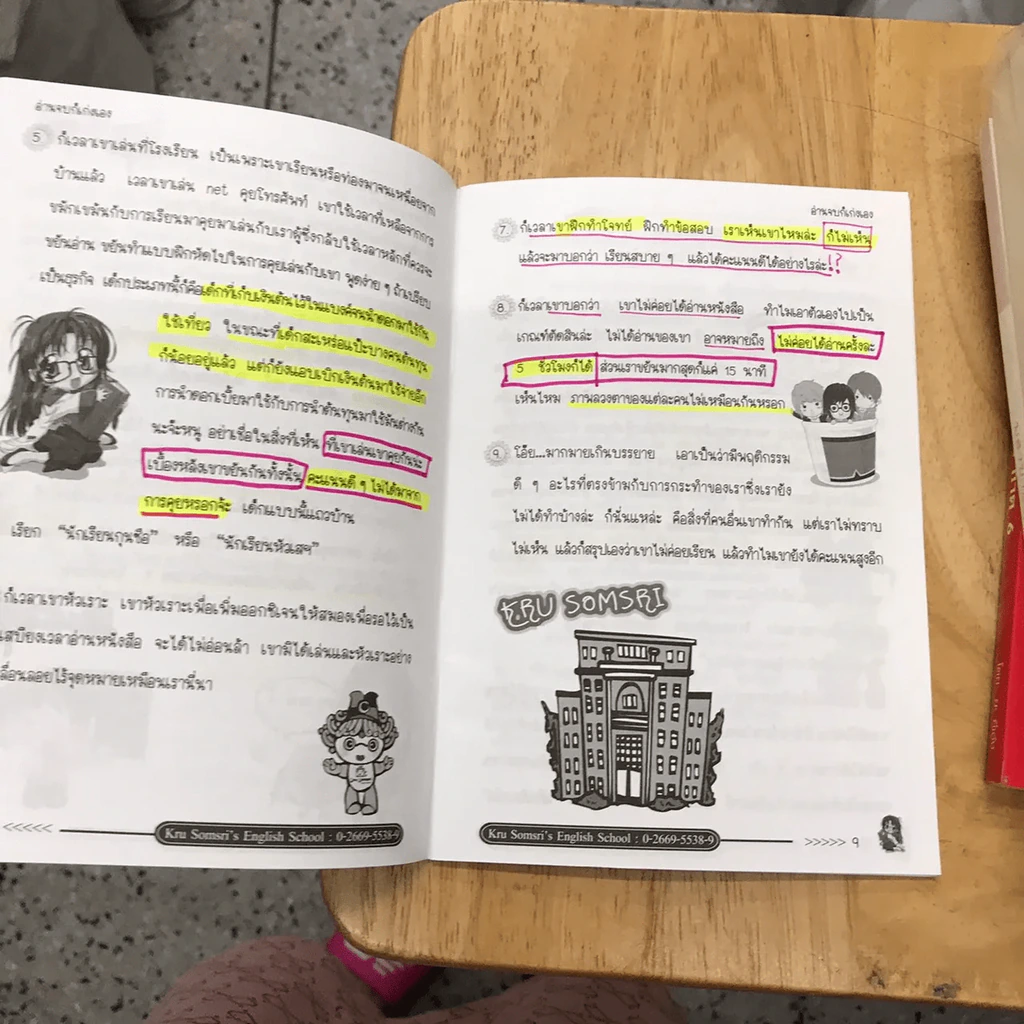 อ่านจบก็เก่งเอง
5 ก็เวลาเขาเล่นที่โรงเรียน เป็นเพราะเขาเรียนหรือท่องมาจนเหนื่อยจาก
บ้านแล้ว เวลาเขาเล่น net คุยโทรศัพท์ เขาใช้เวลาที่เหลือจากการ
ขมักเขม้นกับการเรียนมาคุยมาเล่นกับเราผู้ซึ่งกลับใช้เวลาหลักที่ควรจะ
ขยันอ่าน ขยันทำแบบฝึกหัดไปในการคุยเล่นกับเขา พูดง่าย ๆ ถ้าเปรียบ
เป็นธุรกิจ เด็กประเภทนี้ก็คือเด็กที่เก็บเงินต้นไว้ในแบงค์จนนำดอกมาใช้กิน
ใช้เที่ยว ในขณะที่เด็กสะเหร่อแป๊ะบางคนต้นทุน
ก็น้อยอยู่แล้ว แต่ก็ยังแอบเบิกเงินต้นมาใช้จ่ายอีก
การนำดอกเบี้ยมาใช้กับการนำต้นทุนมาใช้มันต่างกัน
นะจ๊ะหนู อย่าเชื่อในสิ่งที่เห็น ที่เขาเล่นเขาคุยกันนะ
เบื้องหลังเขาขยันกันทั้งนั้น คะแนนดี ๆ ไม่ได้มาจาก
การคุยหรอกจ้ะ เด็กแบบนี้แถวบ้าน
เรียก “นักเรียนกุนซือ” หรือ “นักเรียนหัวเสฯ”
ก็เวลาเขาหัวเราะ เขาหัวเราะเพื่อเพิ่มออกซิเจนให้สมองเพื่อรอไว้เป็น
เสบียงเวลาอ่านหนังสือ จะได้ไม่อ่อนล้า เขามิได้เล่นและหัวเราะอย่าง
เลื่อนลอยไร้จุดหมายเหมือนเรานี่นา
<<<<< Kru Somsri's English School : 0-2669-5538-9
อ่านจบก็เก่งเอง
7. ก็เวลาเขาฝึกทำโจทย์ ฝึกทำข้อสอบ เราเห็นเขาไหมล่ะ ก็ไม่เห็น
แล้วจะมาบอกว่า เรียนสบาย ๆ แล้วได้คะแนนดีได้อย่างไรล่ะ!?
8. ก็เวลาเขาบอกว่า เขาไม่ค่อยได้อ่านหนังสือ ทำไมเอาตัวเองไปเป็น
เกณฑ์ตัดสินล่ะ ไม่ได้อ่านของเขา อาจหมายถึง ไม่ค่อยได้อ่านครั้งละ
5 ชั่วโมงก็ได้ ส่วนเราขยันมากสุดก็แค่ 15 นาที
เห็นไหม ภาพลวงตาของแต่ละคนไม่เหมือนกันหรอก
9. โอ๊ย...มากมายเกินบรรยาย เอาเป็นว่ามีพฤติกรรม
ดี ๆ อะไรที่ตรงข้ามกับการกระทำของเราซึ่งเรายัง
ไม่ได้ทำบ้างล่ะ ก็นั่นแหล่ะ คือสิ่งที่คนอื่นเขาทำกัน แต่เราไม่ทราบ
ไม่เห็น แล้วก็สรุปเองว่าเขาไม่ค่อยเรียน แล้วทำไมเขายังได้คะแนนสูงอีก
KRU SOMSRI
Kru Somsri's English School : 0-2669-5538-9 >>>>> 9